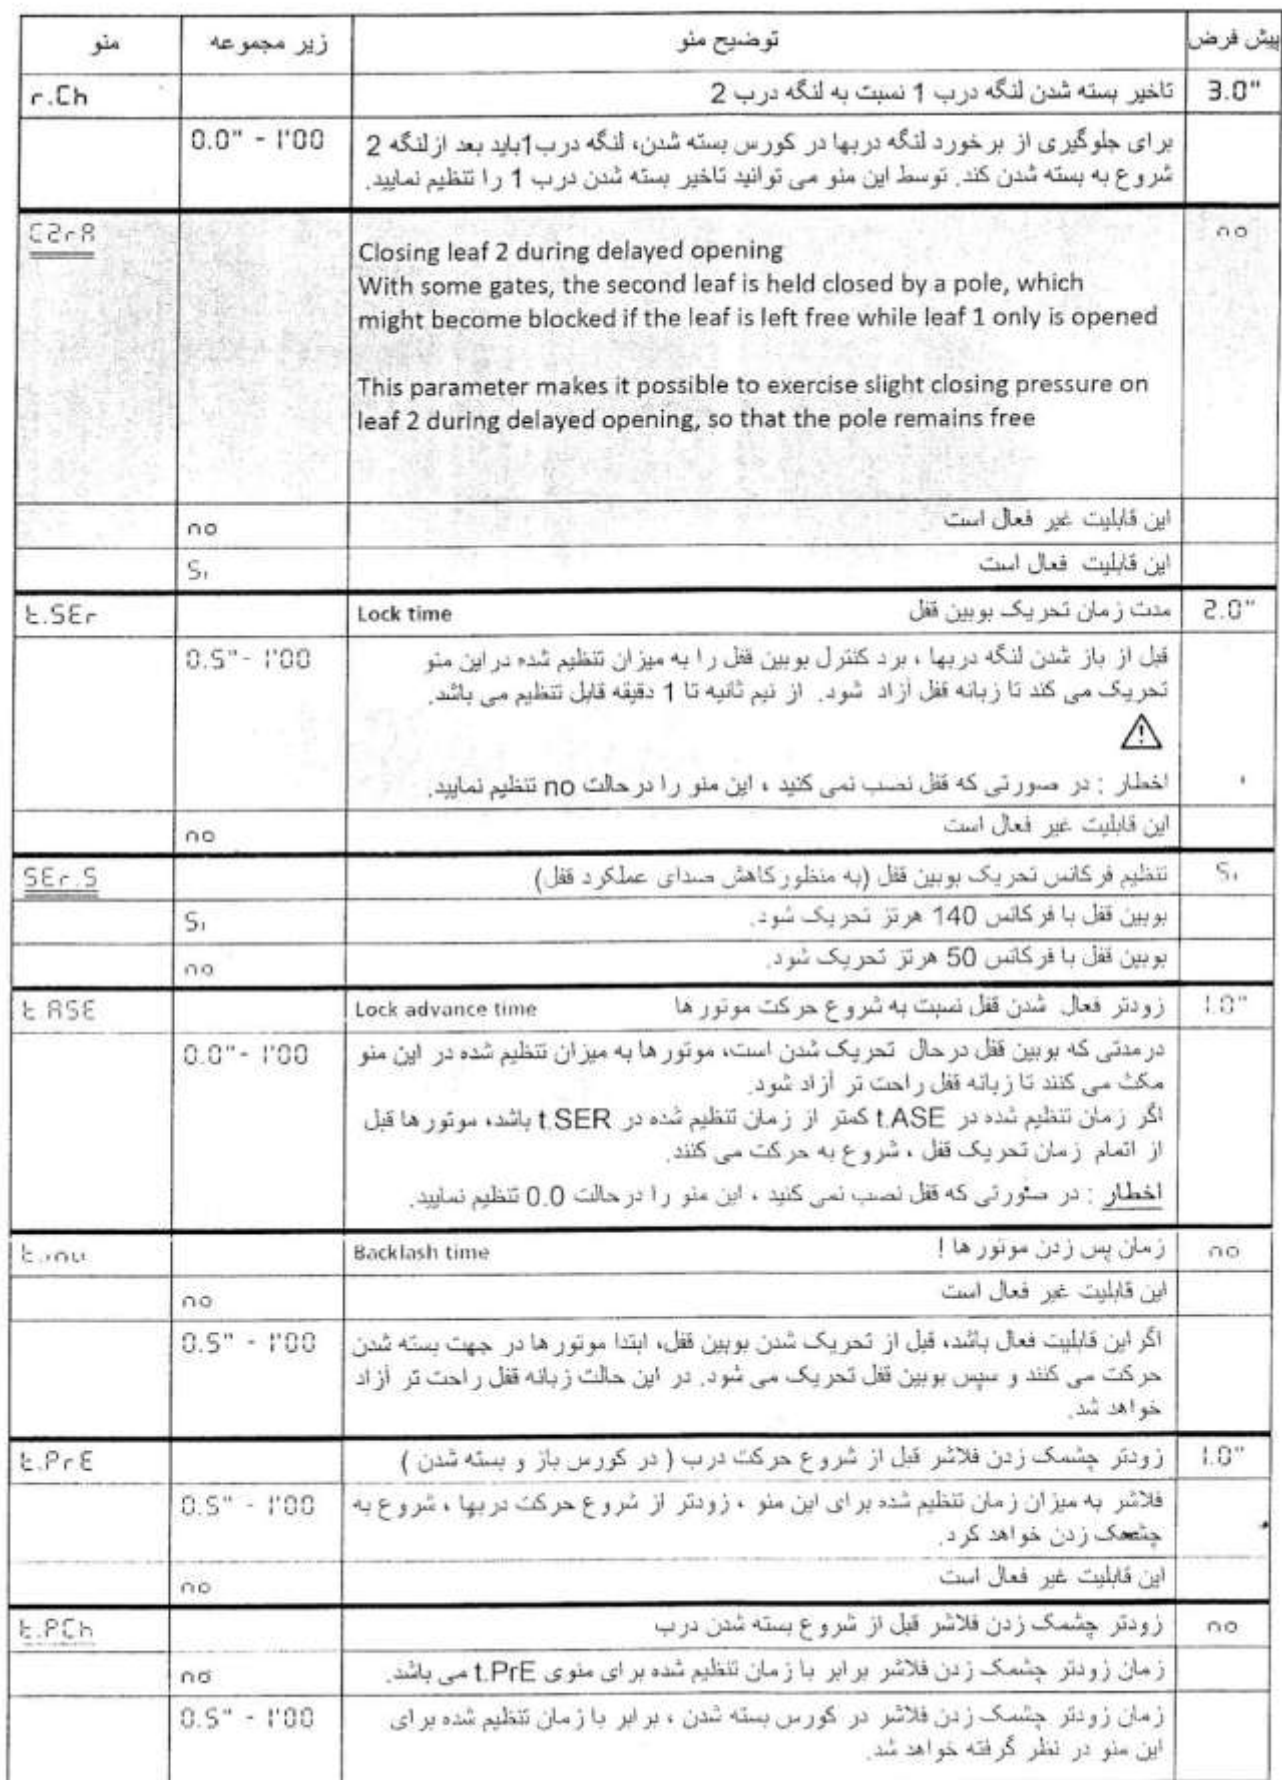 منو
زیر مجموعه
توضیح منو
پیش فرض
r.Ch
تاخیر بسته شدن لنگه درب 1 نسبت به لنگه درب 2
3.0"
0.0" - 1'00
برای جلوگیری از برخورد لنگه دربها در کورس بسته شدن، لنگه درب1باید بعد ازلنگه 2
شروع به بسته شدن کند. توسط این منو می توانید تاخیر بسته شدن درب 1 را تنظیم نمایید.
C2rA
no
Closing leaf 2 during delayed opening
With some gates, the second leaf is held closed by a pole, which
might become blocked if the leaf is left free while leaf 1 only is opened
This parameter makes it possible to exercise slight closing pressure on
leaf 2 during delayed opening, so that the pole remains free
no
این قابلیت غیر فعال است
Si
این قابلیت فعال است
t.SEr
Lock time
مدت زمان تحریک بوبین قفل
2.0"
0.5"- 1'00
قبل از باز شدن لنگه دربها ، برد کنترل بوبین قفل را به میزان تنظیم شده دراین منو
تحریک می کند تا زبانه قفل آزاد شود. از نیم ثانیه تا 1 دقیقه قابل تنظیم می باشد.
اخطار : در صورتی که قفل نصب نمی کنید ، این منو را درحالت no تنظیم نمایید.
no
این قابلیت غیر فعال است
SEr.S
تنظیم فرکانس تحریک بوبین قفل (به منظورکاهش صدای عملکرد قفل)
Si
Si
بوبین قفل با فرکانس 140 هرتز تحریک شود.
no
بوبین قفل با فرکانس 50 هرتز تحریک شود.
t.ASE
Lock advance time
زودتر فعال شدن قفل نسبت به شروع حرکت موتور ها
1.0"
0.0"- 1'00
درمدتی که بوبین قفل درحال تحریک شدن است، موتورها به میزان تنظیم شده در این منو
مکث می کنند تا زبانه قفل راحت تر آزاد شود.
اگر زمان تنظیم شده در t.ASE کمتر از زمان تنظیم شده در t.SER باشد، موتورها قبل
از اتمام زمان تحریک قفل ، شروع به حرکت می کنند.
اخطار : در صورتی که قفل نصب نمی کنید ، این منو را درحالت 0.0 تنظیم نمایید.
t.inu
Backlash time
زمان پس زدن موتور ها !
no
no
این قابلیت غیر فعال است
0.5" - 1'00
اگر این قابلیت فعال باشد، قبل از تحریک شدن بوبین قفل، ابتدا موتور ها در جهت بسته شدن
حرکت می کنند و سپس بوبین قفل تحریک می شود. در این حالت زبانه قفل راحت تر آزاد
خواهد شد.
t.PrE
زودتر چشمک زدن فلاشر قبل از شروع حرکت درب ( در کورس باز و بسته شدن )
1.0"
0.5" - 1'00
فلاشر به میزان زمان تنظیم شده برای این منو ، زودتر از شروع حرکت دربها ، شروع به
چشمک زدن خواهد کرد.
no
این قابلیت غیر فعال است
t.PCh
زودتر چشمک زدن فلاشر قبل از شروع بسته شدن درب
no
no
زمان زودتر چشمک زدن فلاشر برابر با زمان تنظیم شده برای منوی t.PrE می باشد.
0.5" - 1'00
زمان زودتر چشمک زدن فلاشر در کورس بسته شدن ، برابر با زمان تنظیم شده برای
این منو در نظر گرفته خواهد شد.